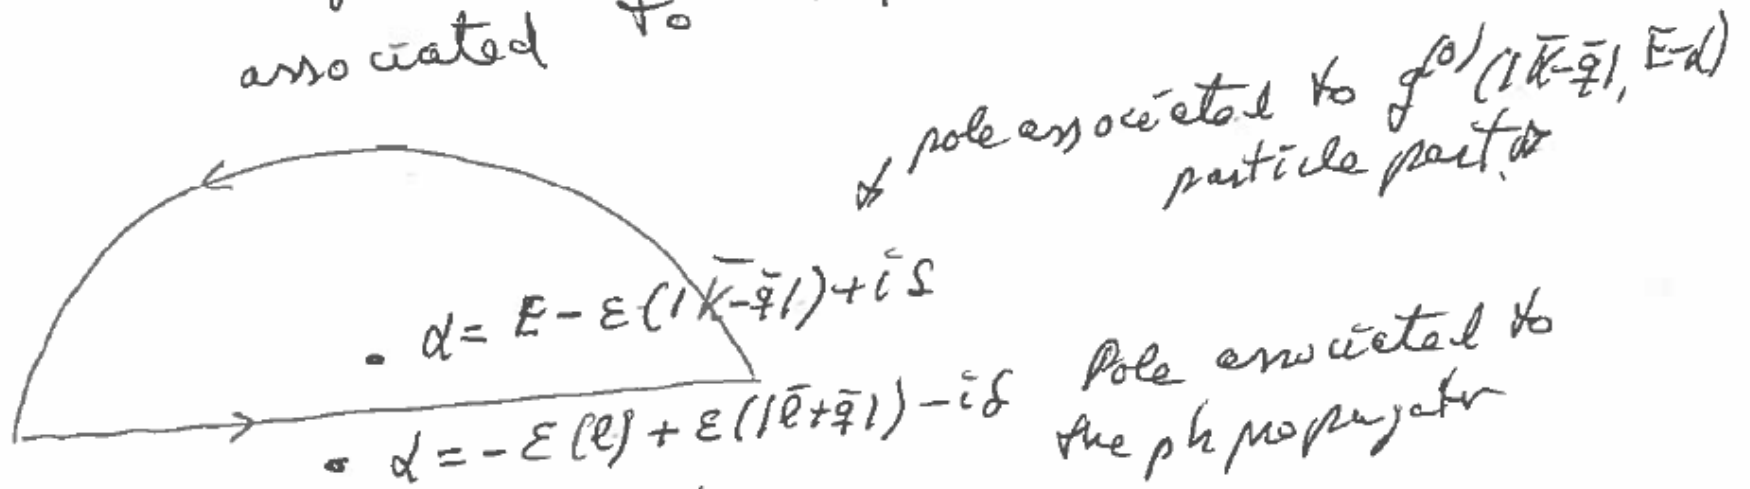 associated to
pole associated to g^(0)(|k̄-q̄|, E-α)
particle part.
α = E - ε(|k̄-q̄|) + iδ
α = -ε(l) + ε(|l̄+q̄|) - iδ Pole associated to
the ph propagator